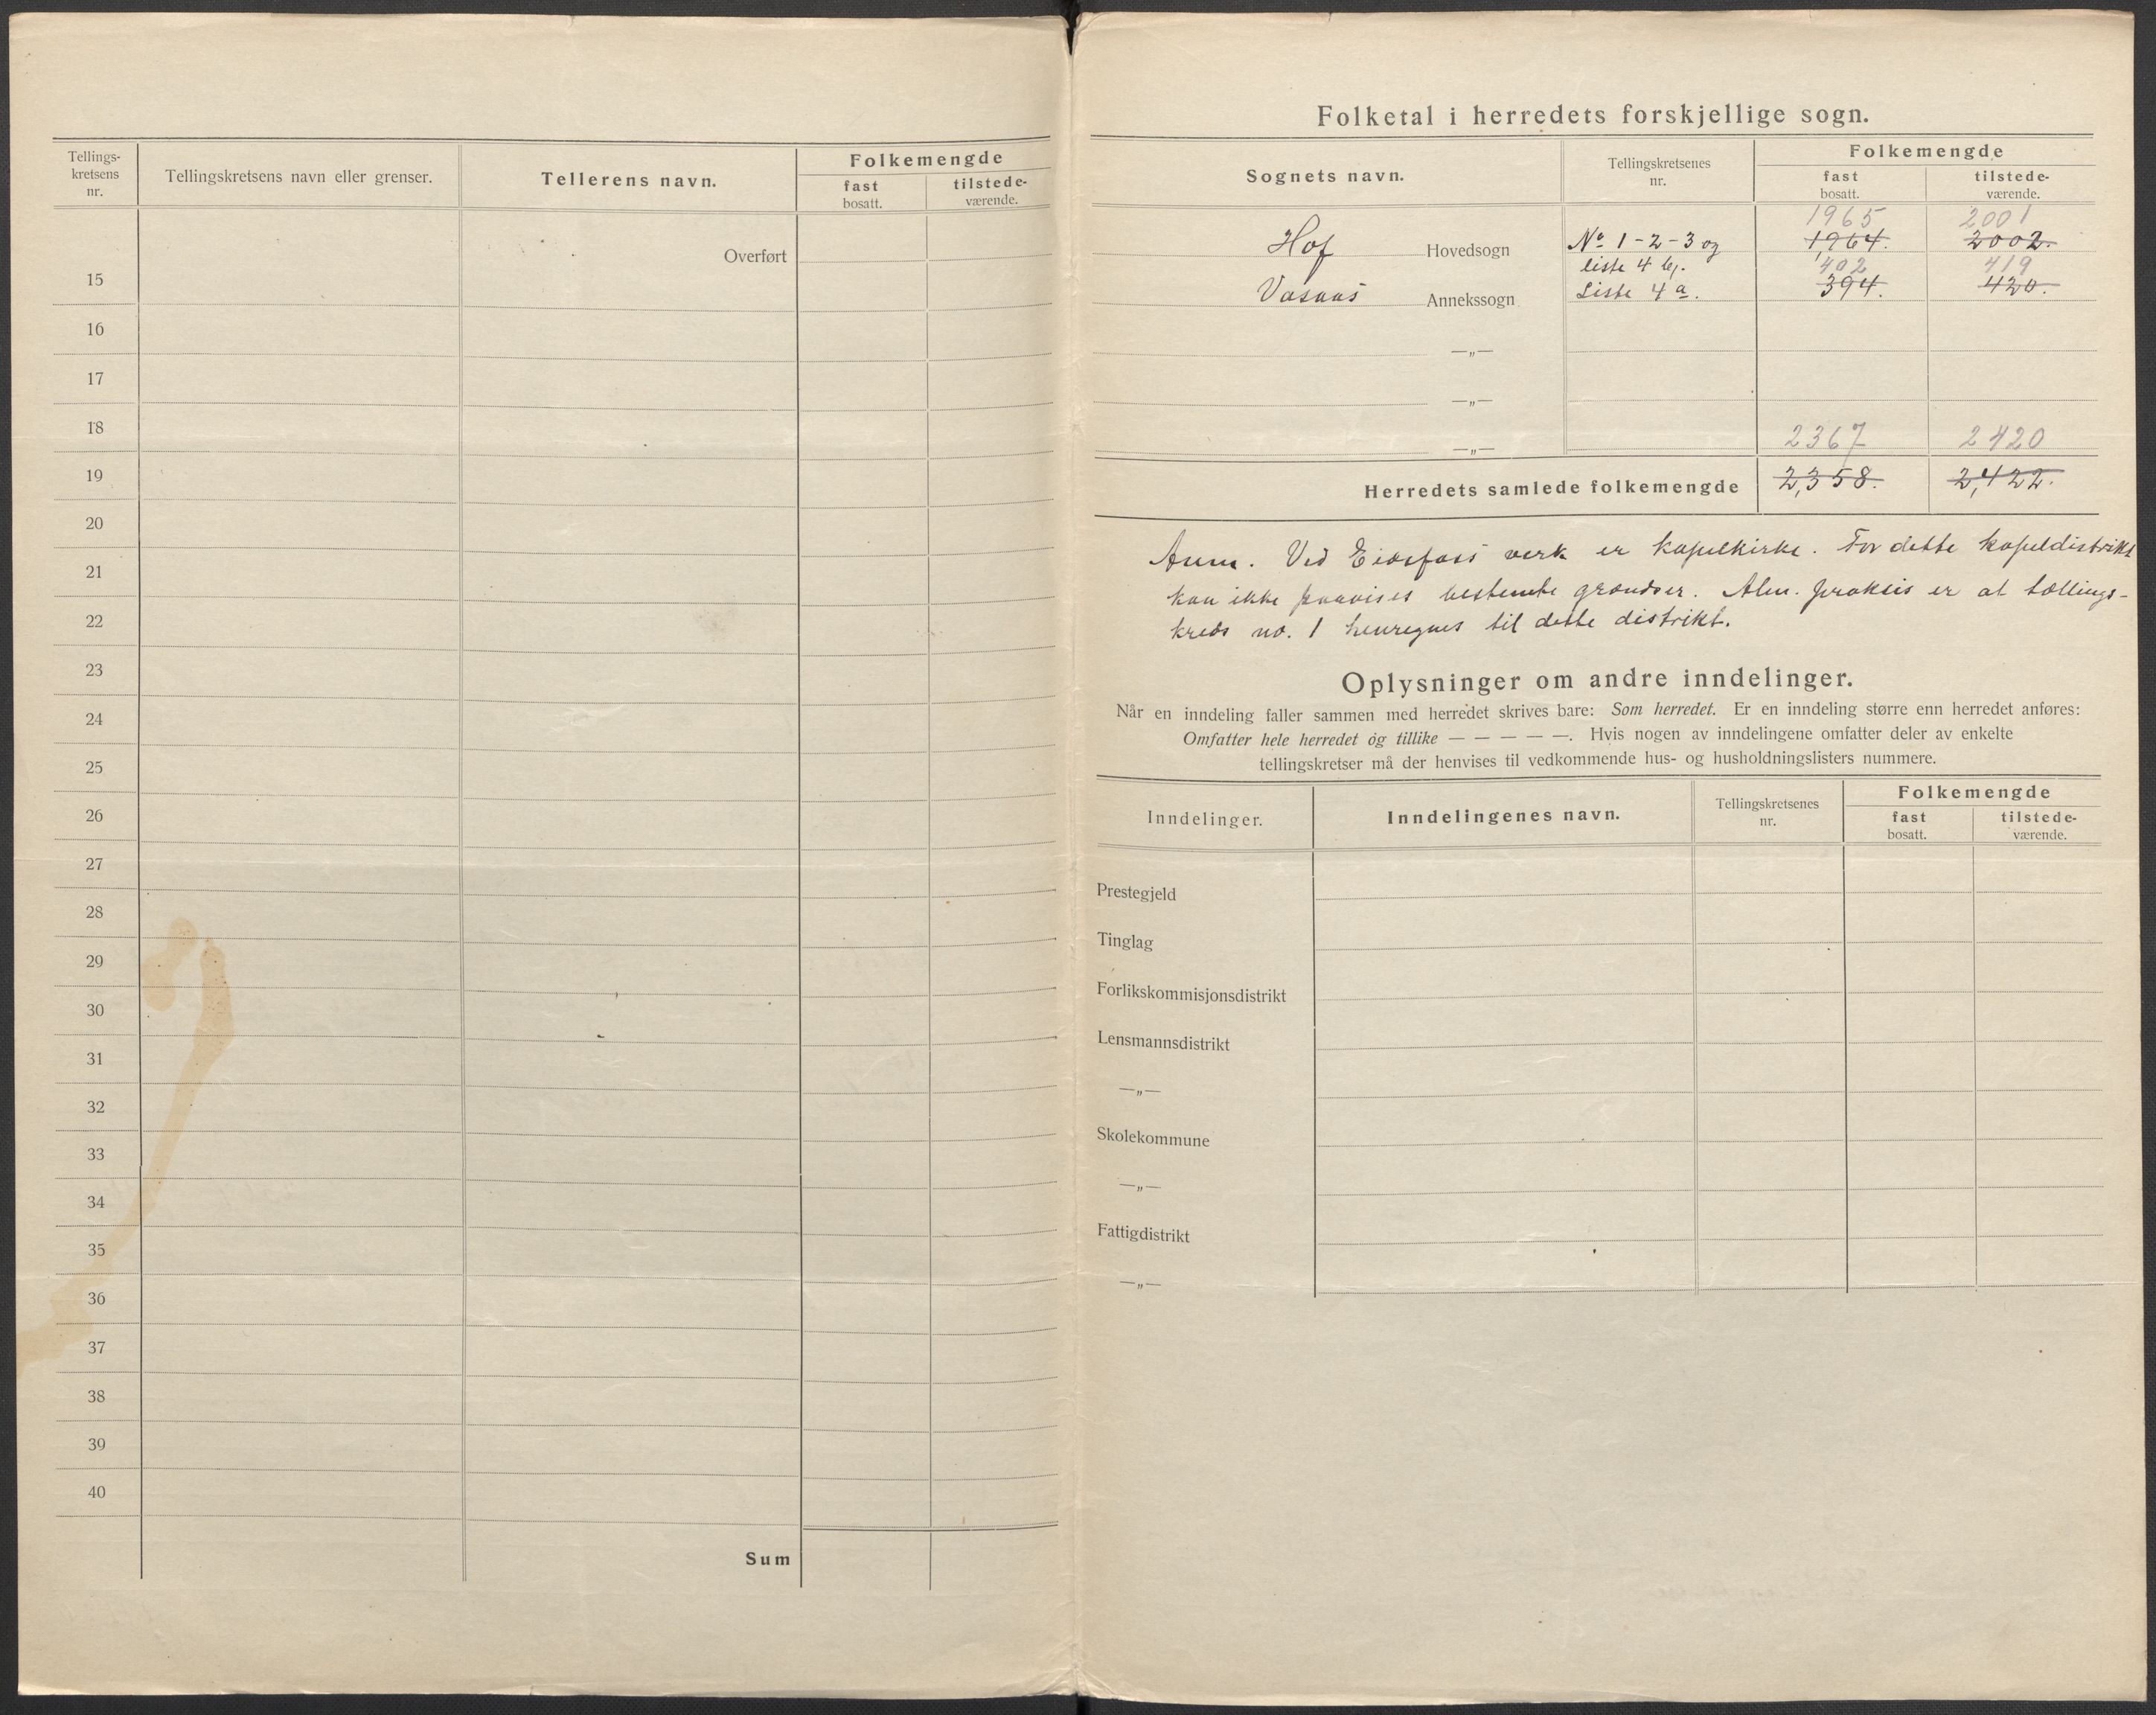 Tellings-
kretsens
nr.
Tellingskretsens navn eller grenser.
Tellerens navn.
Folkemengde
fast
bosatt.
tilstede-
værende.
Overført
15
16
17
18
19
20
21
22
23
24
25
26
27
28
29
30
31
32
33
34
35
36
37
38
39
40
Sum
Folketal i herredets forskjellige sogn.
Sognets navn.
Tellingskretsenes
nr.
Folkemengde
fast
bosatt.
tilstede-
værende.
1965 2001
Hof Hovedsogn No 1-2-3 og 1964. 2002.
liste 4 b. 402 419
Vasaas Annekssogn Liste 4 a. 394. 420.
—„—
—„—
2367 2420
—„—
Herredets samlede folkemengde 2,358. 2,422.
Anm. Ved Eidsfoss verk er kapelkirke. For dette kapeldistrikt
kan ikke paavises bestemte grændser. Alm. praksis er at tællings-
kreds no. 1 henregnes til dette distrikt.
Oplysninger om andre inndelinger.
Når en inndeling faller sammen med herredet skrives bare: Som herredet. Er en inndeling større enn herredet anføres:
Omfatter hele herredet og tillike — — — — —. Hvis nogen av inndelingene omfatter deler av enkelte
tellingskretser må der henvises til vedkommende hus- og husholdningslisters nummere.
Inndelinger.
Inndelingenes navn.
Tellingskretsenes
nr.
Folkemengde
fast
bosatt.
tilstede-
værende.
Prestegjeld
Tinglag
Forlikskommisjonsdistrikt
Lensmannsdistrikt
—„—
Skolekommune
—„—
Fattigdistrikt
—„—